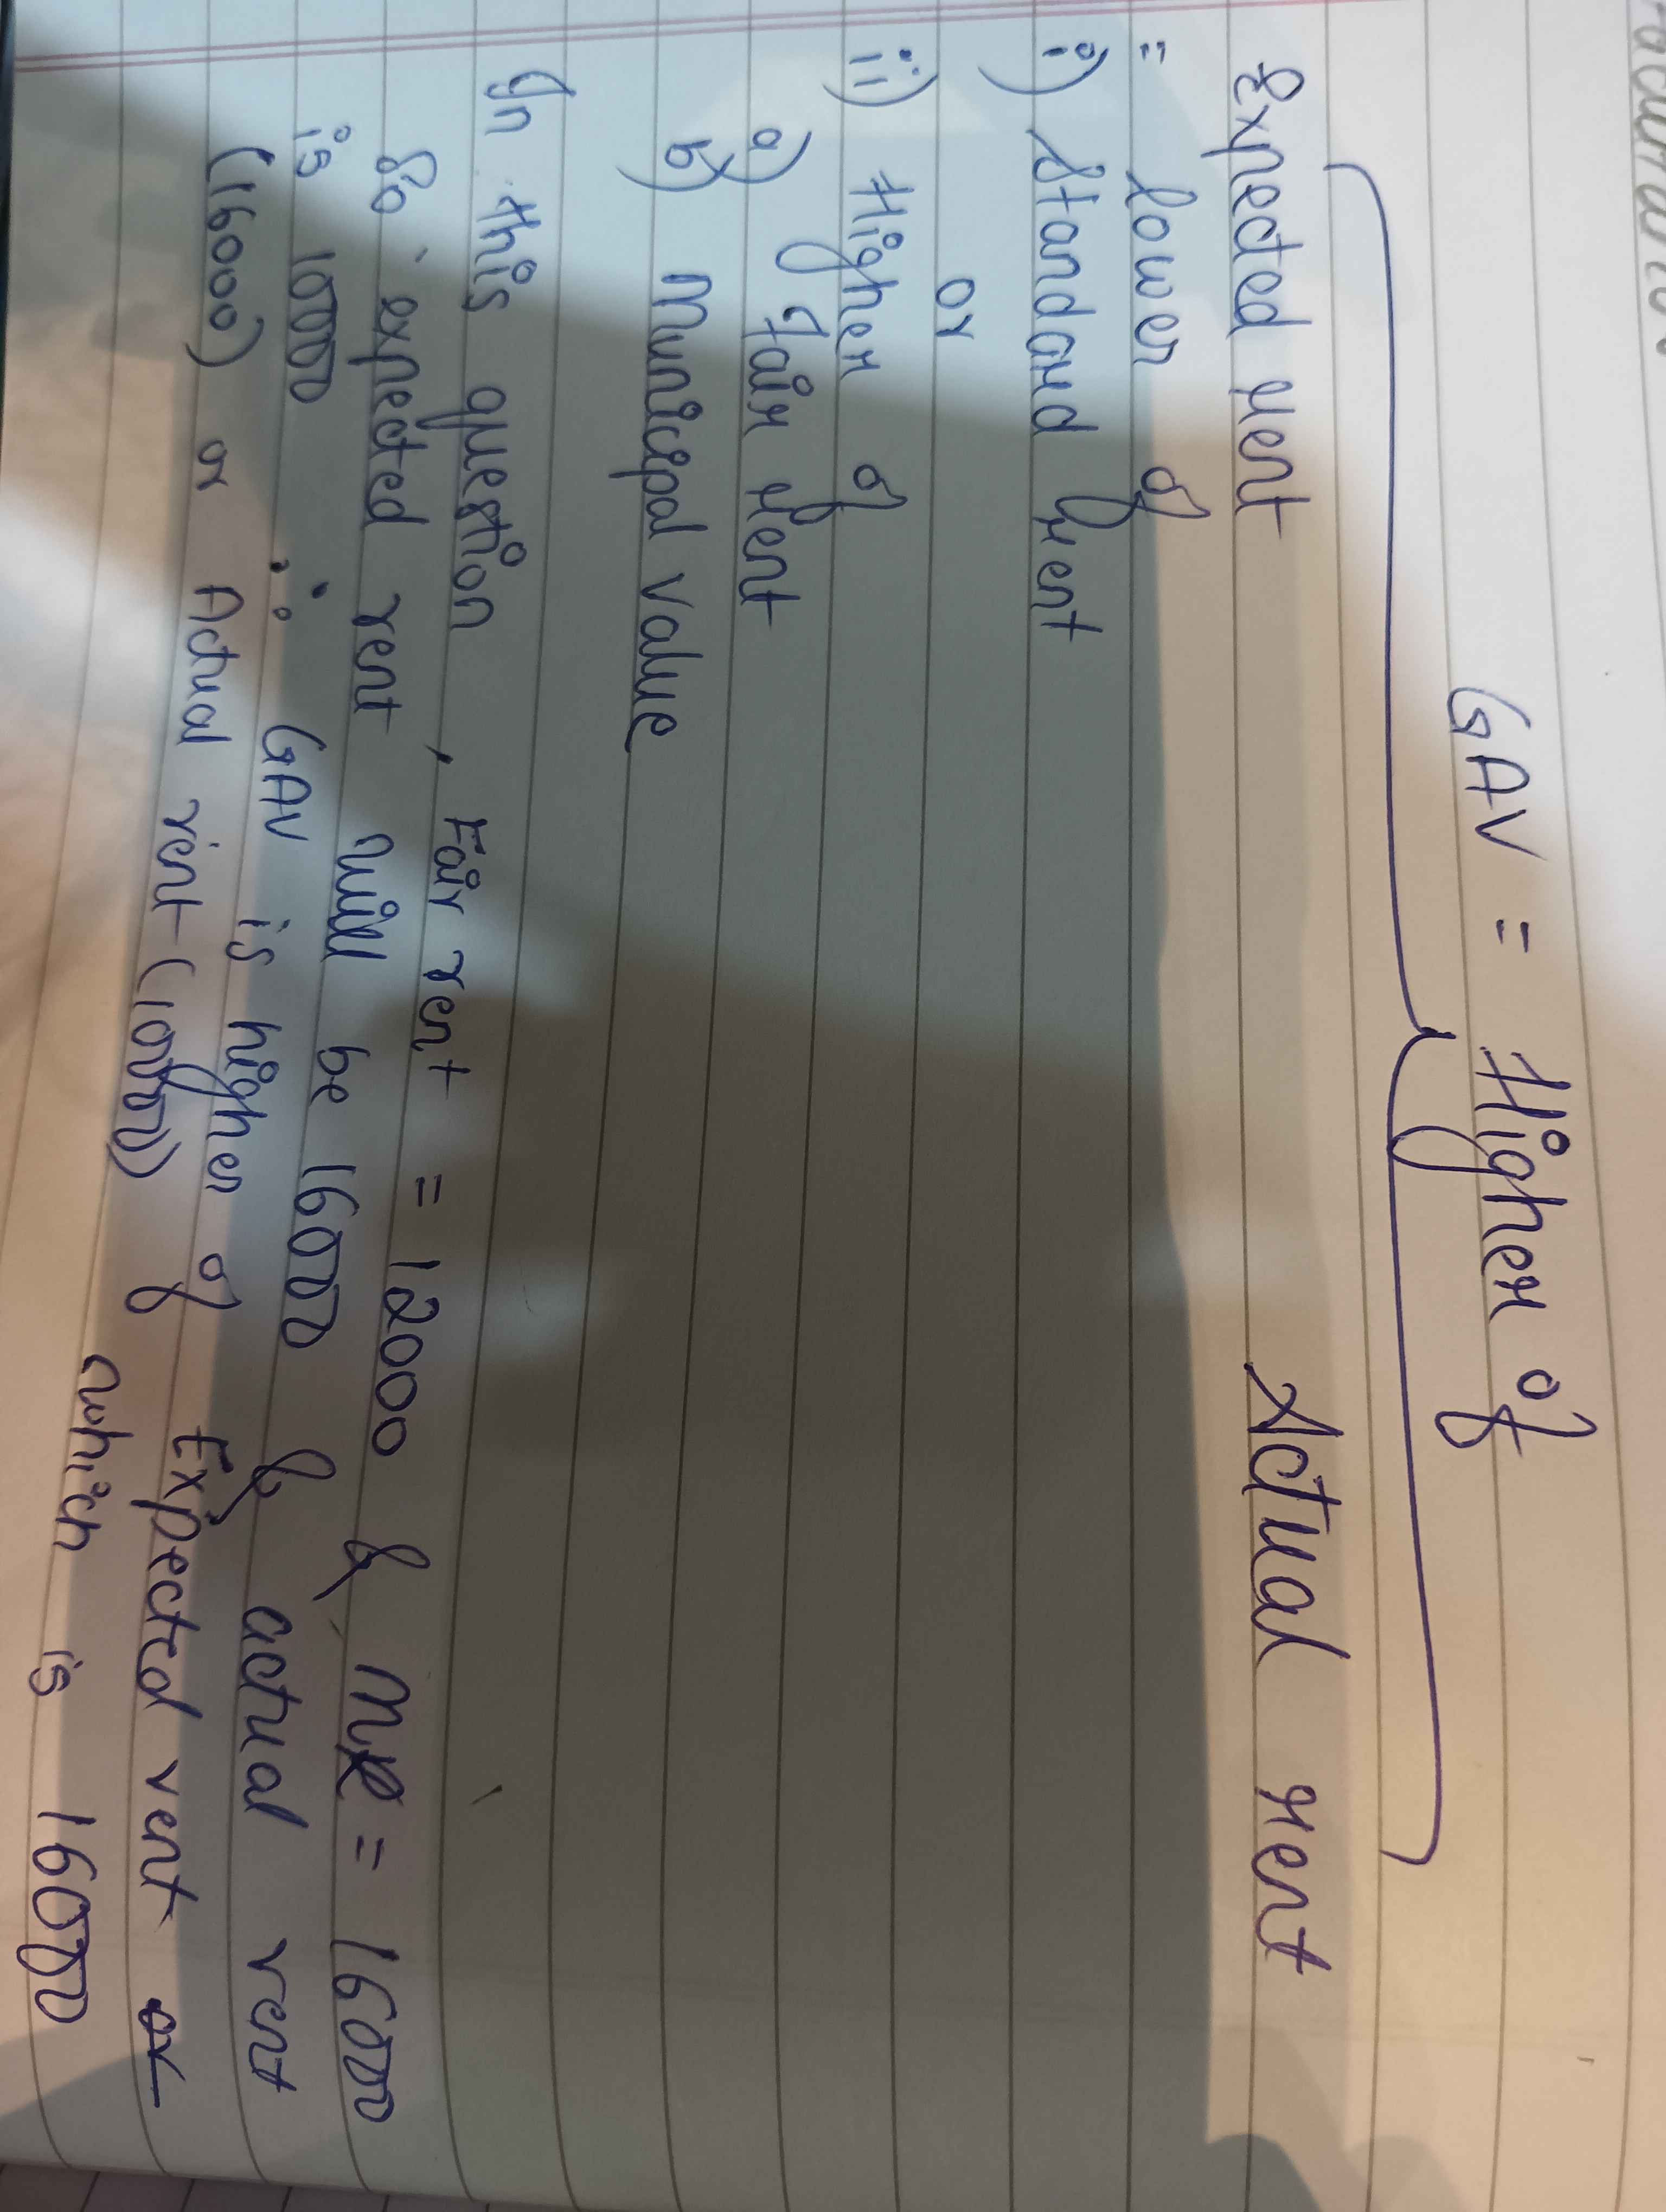 GAV = Higher of
Expected rent Actual rent
= lower of
i) Standard rent
or
ii) Higher of
a) Fair rent
b) Municipal value
In this question, Fair rent = 12000 & MR = 16000
So expected rent will be 16000 & actual rent
is 10000 ∴ GAV is higher of Expected rent
(16000) or Actual rent (10000) which is 16000